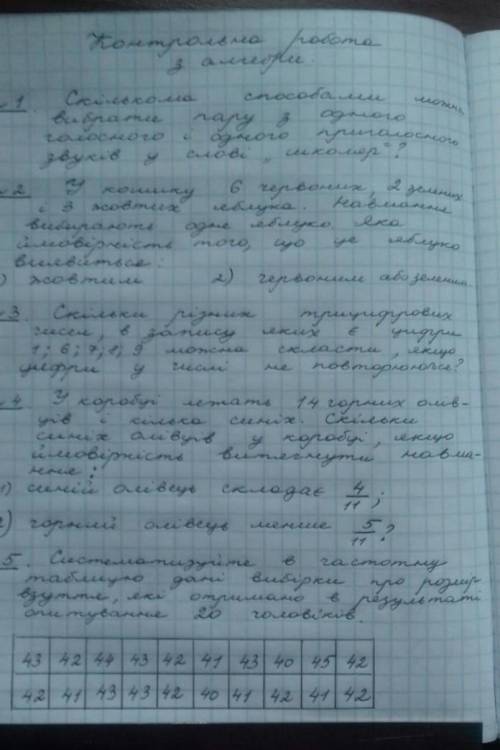 Контрольна робота
з алгебри.
№1. Скількома способами можна
вибрати пару з одного
голосного і одного приголосного
звуків у слові „школяр"?
№2. У кошику 6 червоних, 2 зелених
і 3 жовтих яблука. Навмання
вибирають одне яблуко. Яка
ймовірність того, що це яблуко
виявиться:
1) жовтим 2) червоним або зеленим
№3. Скільки різних трицифрових
чисел, в запису яких є цифри
1; 6; 7; 8; 9 можна скласти, якщо
цифри у числі не повторюються?
№4. У коробці лежать 14 чорних олів-
ців і кілька синіх. Скільки
синіх олівців у коробці, якщо
ймовірність витягнути навма-
ння:
1) синій олівець складає 4/11;
2) чорний олівець менше 5/11?
№5. Систематизуйте в частотну
таблицю дані вибірки про розмір
взуття, які отримано в результаті
опитування 20 чоловіків.
43 42 44 43 42 41 43 40 45 42
42 41 43 43 42 40 41 42 41 42